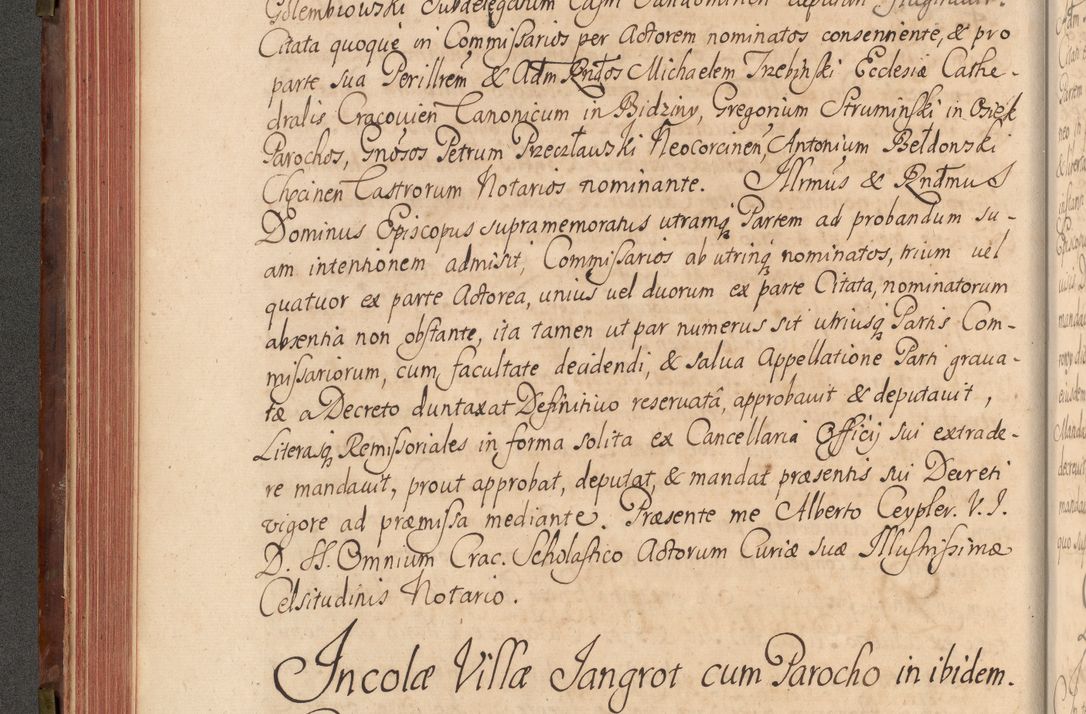 Golembiowski Subdelegatum Castri Sandomirien deputari
Citata quoque in Commissarios per Actorem nominatos consentiente, & pro
parte sua Perillrem & Adm Rndos Michaelem Trzebinski Ecclesiæ Cathe-
dralis Cracovien Canonicum in Bidziny, Gregorium Struminski in Osiek
Parochos, Gnosos Petrum Przeczławski Neocorcinen, Antonium Bełdonski
Chęcinen Castrorum Notarios nominante. Illrmus & Rndmus
Dominus Episcopus supramemoratus utramq Partem ad probandum su-
am intentionem admisit, Commissarios ab utrinq nominatos, trium vel
quatuor ex parte Actorea, unius vel duorum ex parte Citata, nominatorum
absentia non obstante, ita tamen ut par numerus sit utriusq Partis Com-
missariorum, cum facultate decidendi, & salva Appellatione Parti grava-
tæ a Decreto duntaxat Definitivo reservatâ, approbavit & deputavit,
Literasq Remissoriales in forma solita ex Cancellaria Officij sui extrade-
re mandavit, prout approbat, deputat, & mandat præsentis sui Decreti
vigore ad præmissa mediante. Præsente me Alberto Ceypler. V. J.
D. SS. Omnium Crac. Scholastico Actorum Curiæ suæ Illustrissimæ
Celsitudinis Notario.
Incolæ Villæ Jangrot cum Parocho in ibidem.